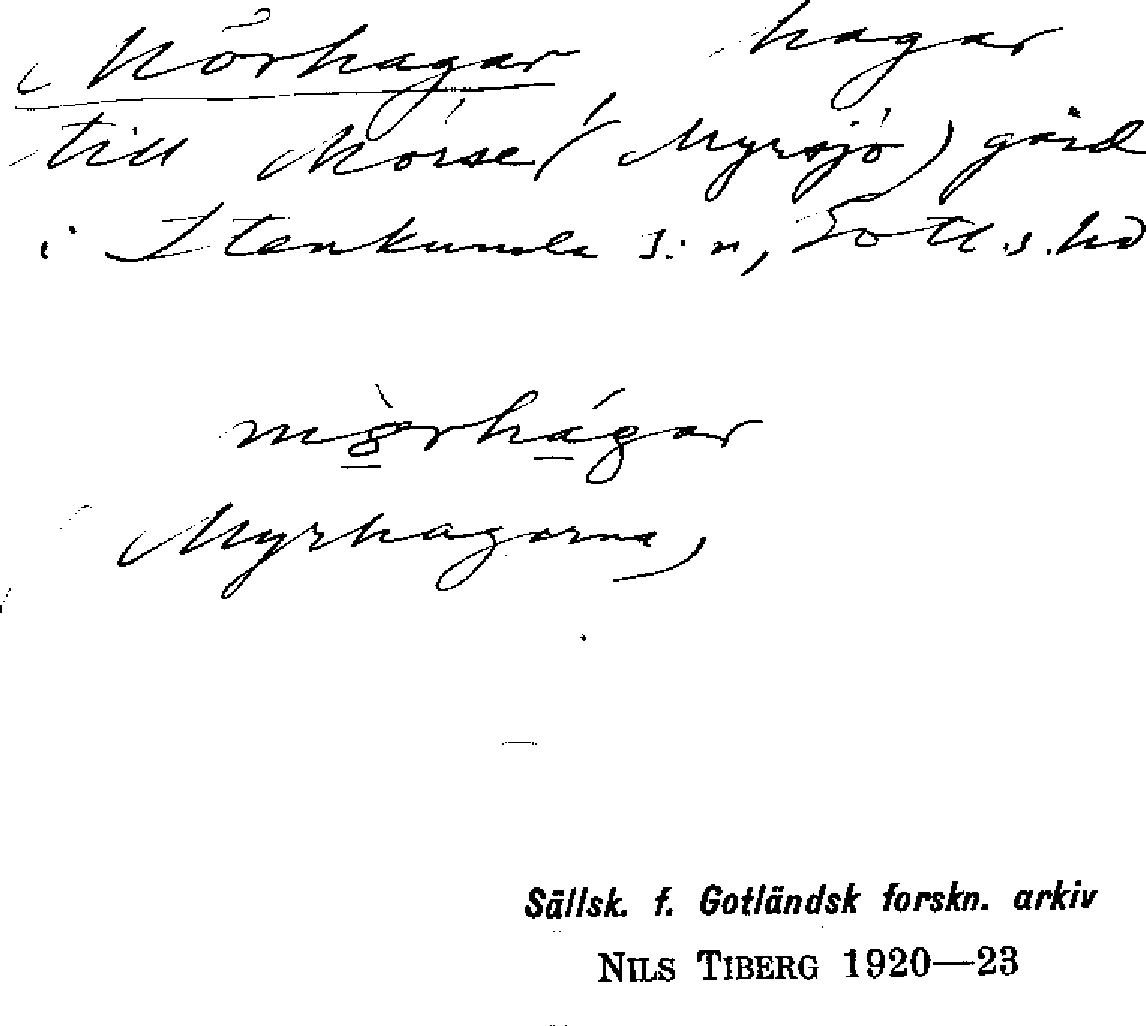 Mörhagar hagar
till Mörse (Myrsjö) gård
i Stenkumla s:n, Gotl.s. hd
mörhágar
Myrhagarna,
Sällsk. f. Gotländsk forskn. arkiv
NILS TIBERG 1920—23